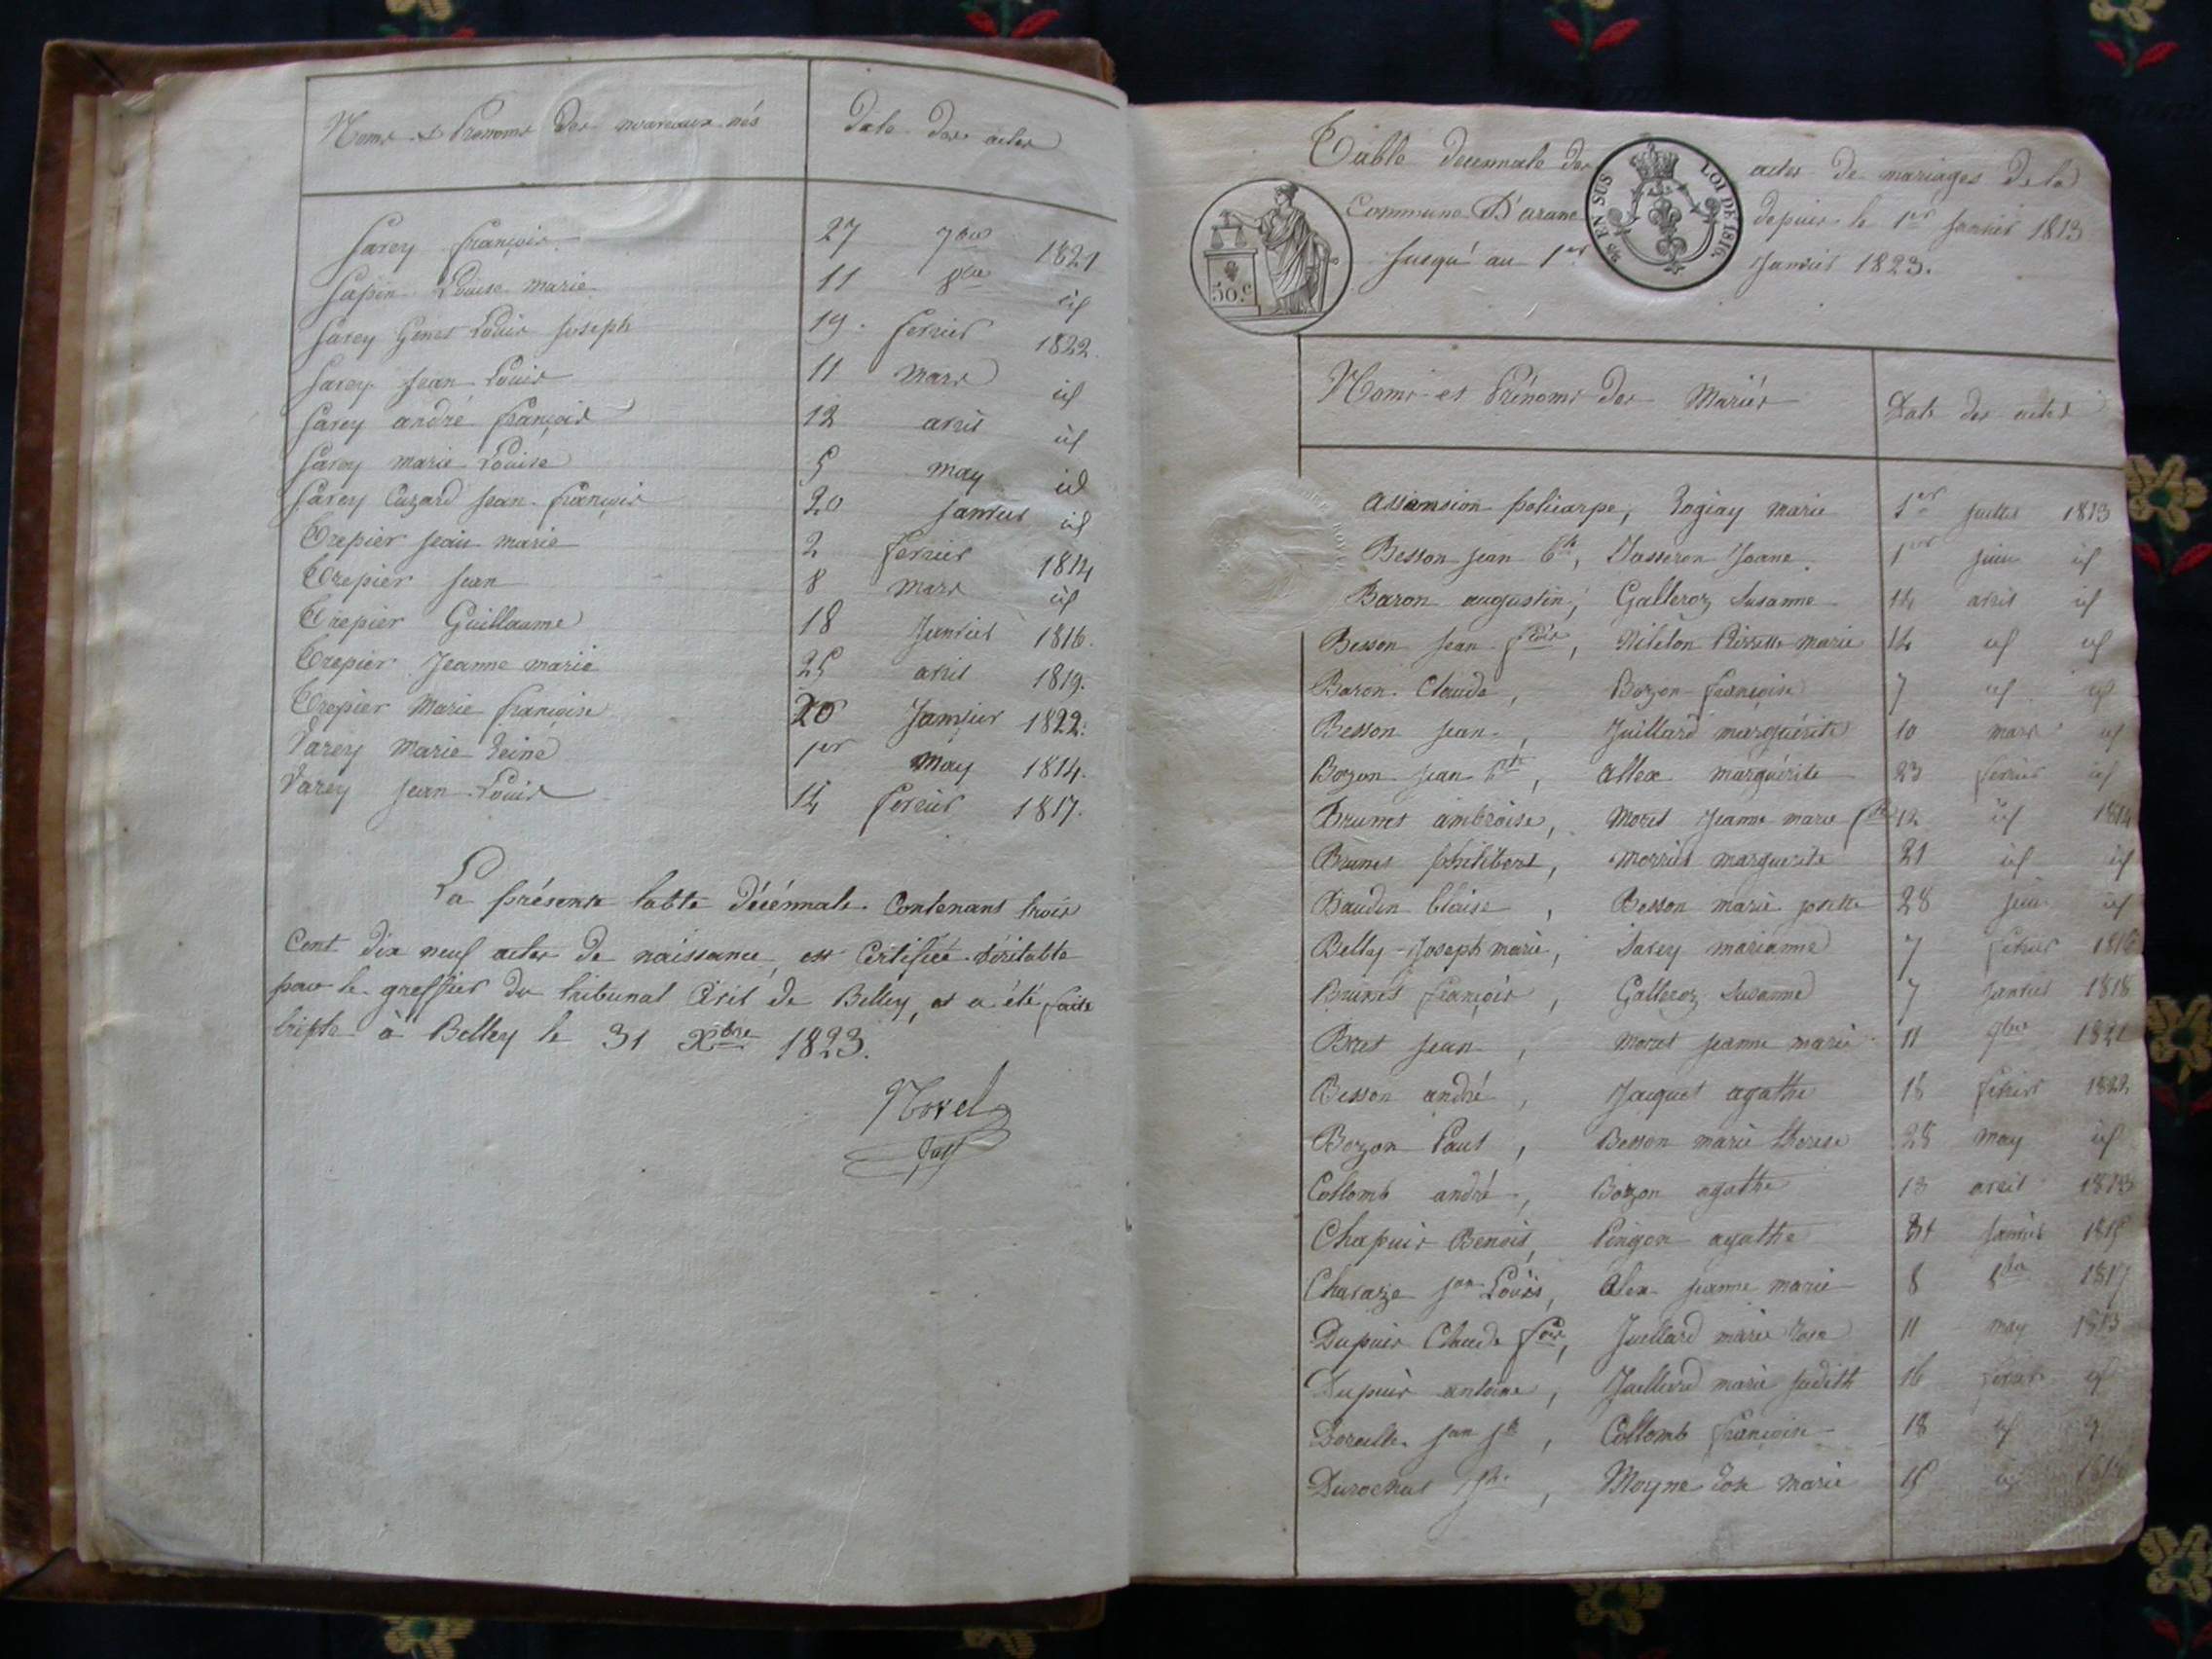 Noms & Prenoms des nouveaux nés
Date des actes
Savey françois 27 7bre 1821
Sapin Louise marie 11 8bre id
Savey Genet Louis Joseph 19 fevrier 1822
Savey Jean Louis 11 mars id
Savey andré françois 12 avril id
Savey marie Louise 5 may id
Savey Cuzard jean françois 20 janvier id
Trepier jean marie 2 fevrier 1814
Trepier Jean 8 mars id
Trepier Guillaume 18 Janvier 1816
Trepier Jeanne marie 25 avril 1819
Trepier Marie françoise 20 Janvier 1822
Varey Marie Reine 1er may 1814
Varey Jean Louis 14 fevrier 1817
La présente table décénnale Contenant trois
Cent dix neuf actes de naissance, est Certifiée véritable
par le greffier du tribunal Civil de Belley, et a été faite
triple à Belley le 31 Xbre 1823.
Table decennale des actes de mariages de la
Commune D'arane depuis le 1er Janvier 1813
Jusqu'au 1er Janvier 1823.
EN SUS LOI DE 1816
50.c
Noms et Prénoms des Mariés
Date des actes
Assension policarpe, marie 1er juillet 1813
Besson jean Bte, Jasseron Joane 1er juin id
Baron augustin, Galleroz Susanne 14 avril id
Besson Jean fçois, Pierrette marie 14 id id
Baron Claude, Bozon françoise 7 id id
Besson Jean, Juillard marguérite 10 mars id
Bozon jean Bte, allex marguérite 23 fevrier id
Brunet ambroise, Moret Jeanne marie 12 id 1814
Brunet philibert, marguerite 21 id id
Baudin blaise, Besson marie josette 28 juin id
Belley Joseph marie, Savey marianne 7 fevrier
Brunet françois, Galleroz Susanne 7 janvier 1818
jean, Moret jeanne marie 11 9bre
Besson andré, Jacquet agathe 18 fevrier 1822
Bozon Paul, Besson marie therese 28 may id
Collomb andré, Bozon agathe 13 avril 1813
Chapuis Benoit, Pingon agathe 31 janvier
Charaze jean Louis, Alex jeanne marie 8 8bre 1817
Dupuis Claude fçois, Juillard marie rose 11 may 1813
Dupuis antoine, Juillard marie judith 16 fevrier id
jean, Collomb françoise 18 id
Durochat, Moyne rose marie